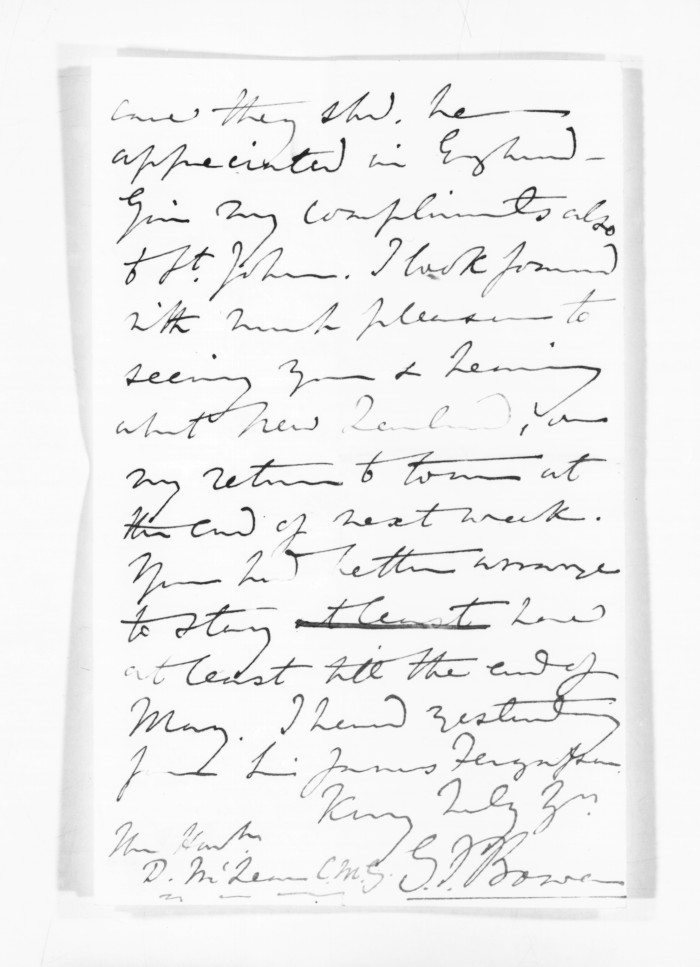 case they shd. be
appreciated in England -
Give my compliments also
to St. John. I look forward
with much pleasure to
seeing you & hearing
about New Zealand, on
my return to town at
the end of next week.
You had better arrange
to stay at least here
at least till the end of
May. I heard yesterday
from Sir James Fergusson.
Very truly yrs
The Honble
D. McLean C.M.G. G.F. Bowen